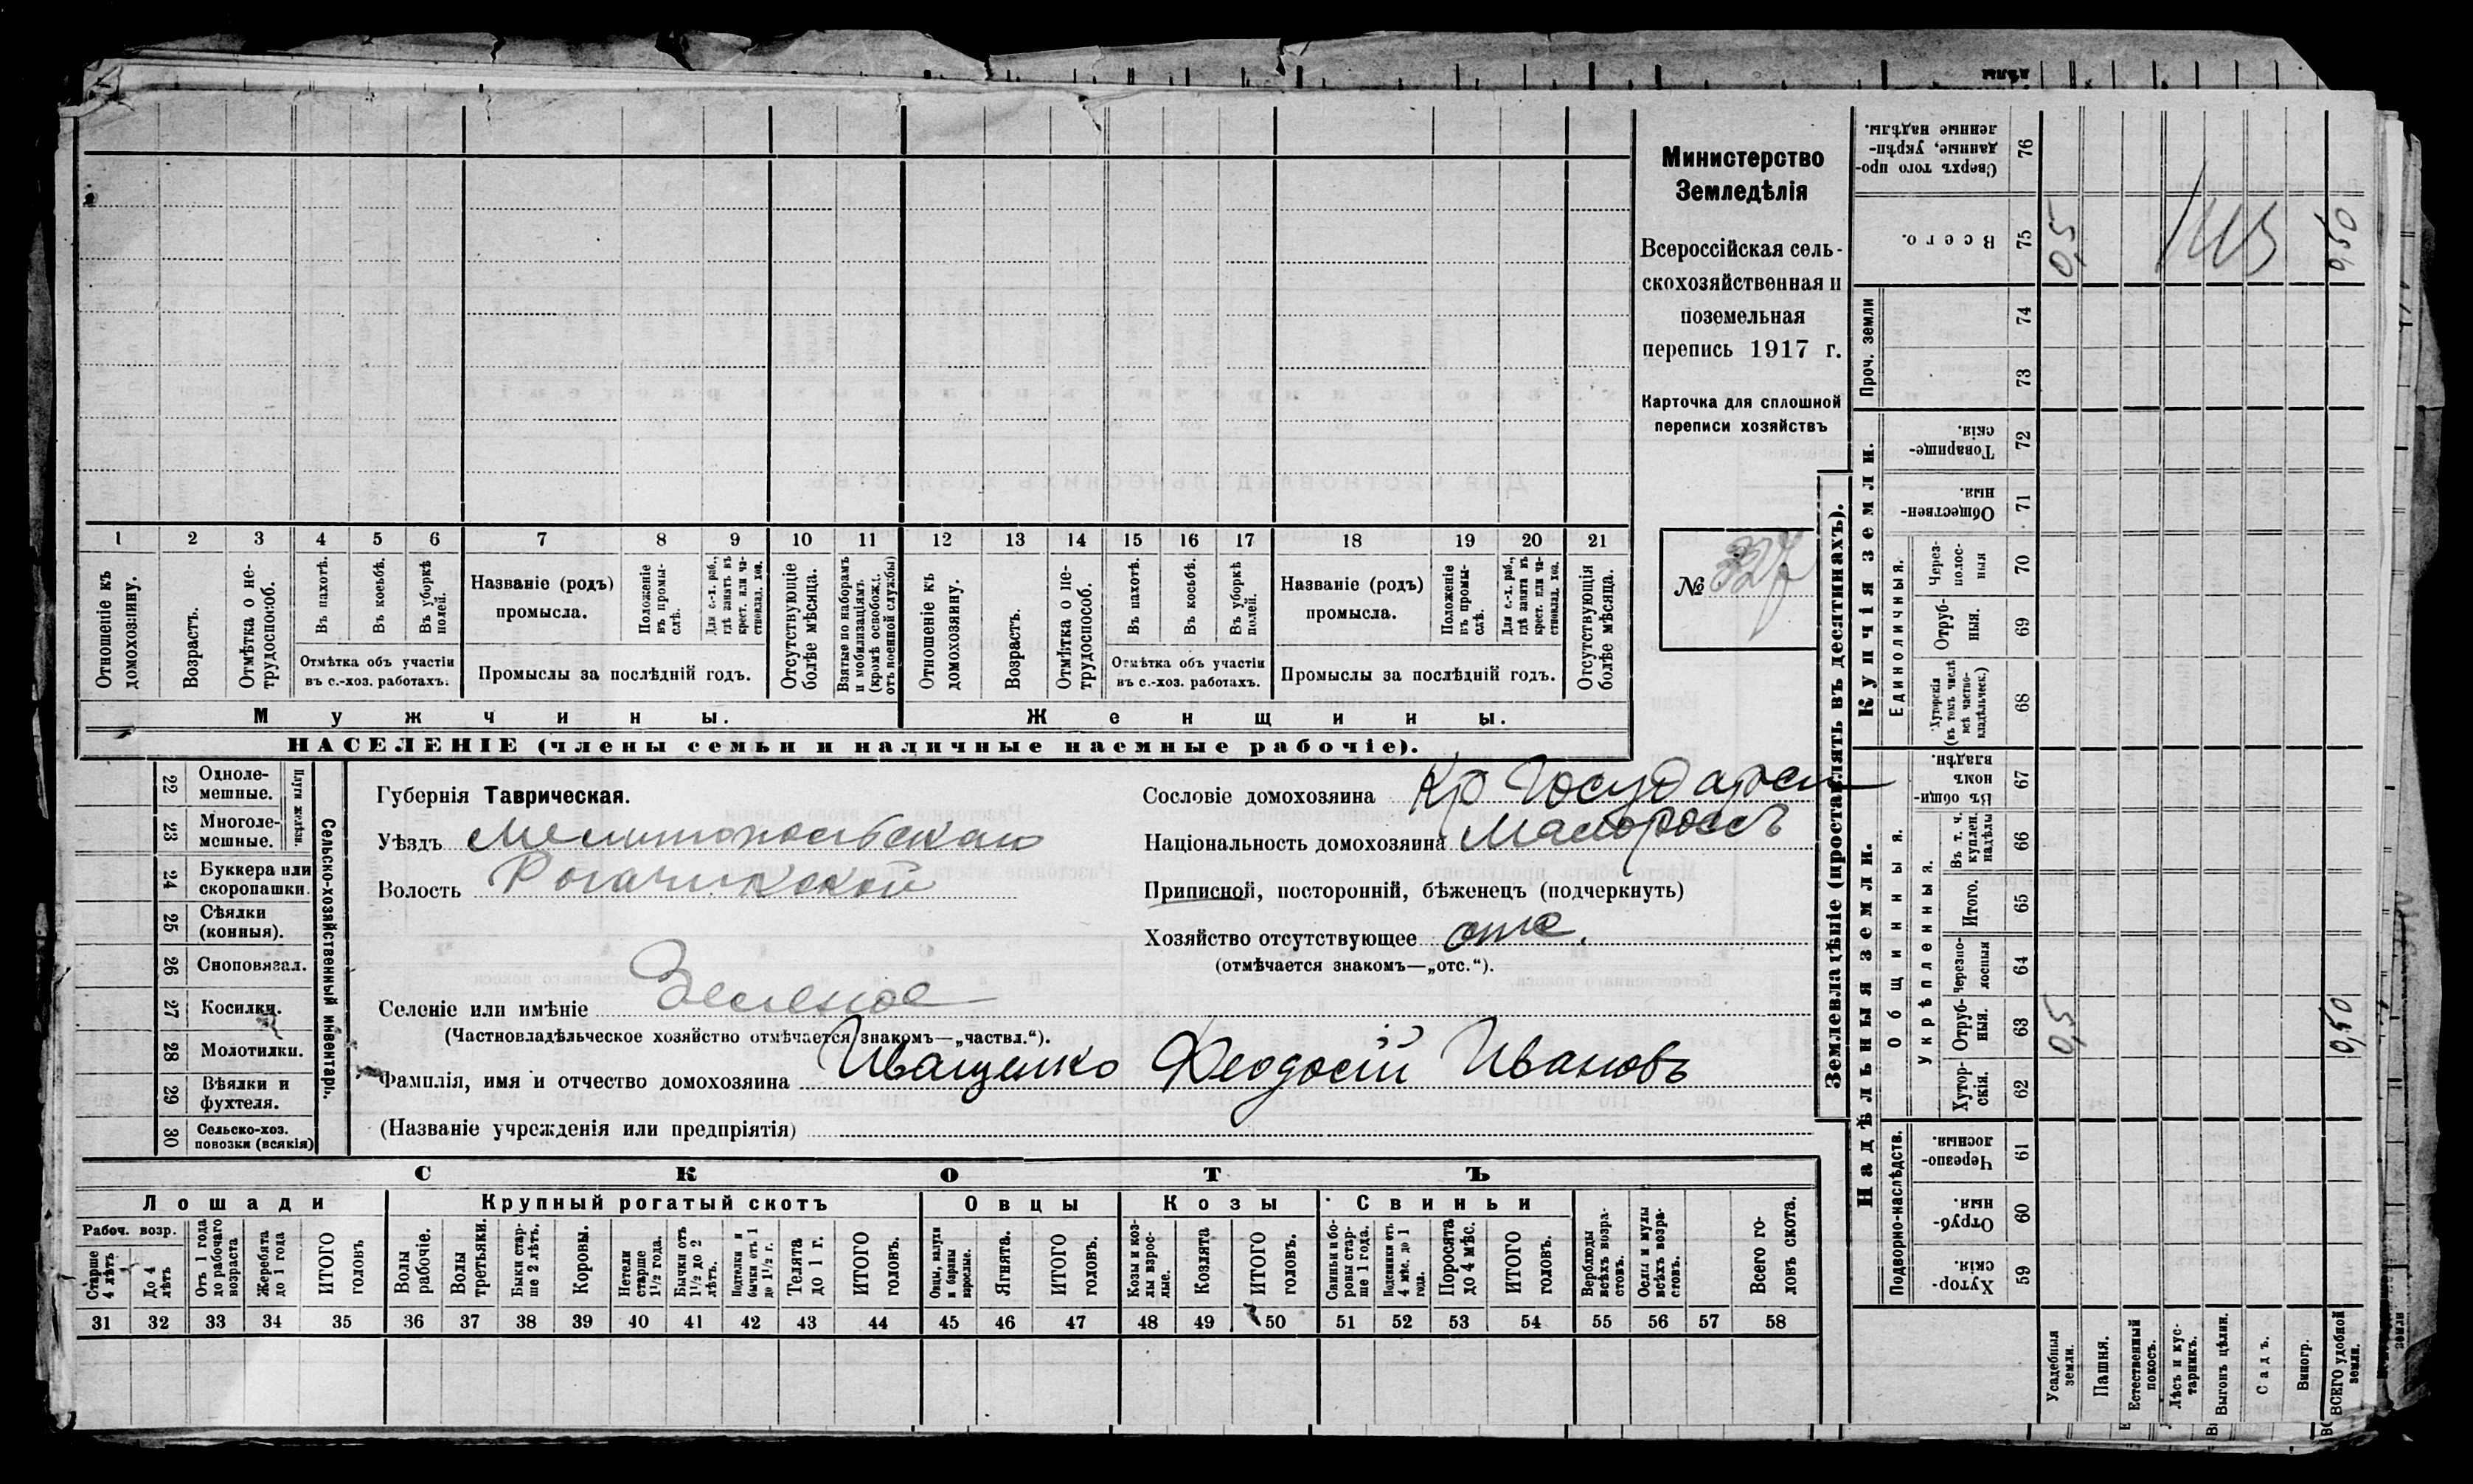 Министерство
Земледѣлія
Всероссійская сель-
скохозяйственная и
поземельная
перепись 1917 г.
Карточка для сплошной
переписи хозяйствъ
№ 327
1 2 3 4 5 6 7 8 9 10 11 12 13 14 15 16 17 18 19 20 21
Отношеніе къ домохозяину.
Возрастъ.
Отмѣтка о не-трудоспособ.
Въ пахотѣ.
Въ косьбѣ.
Въ уборкѣ полей.
Отмѣтка объ участіи
въ с.-хоз. работахъ.
Названіе (родъ)
промысла.
Положеніе въ промы-слѣ.
Для с.-х. раб., гдѣ занятъ въ крест. или ча-стновлад. хоз.
Промыслы за послѣдній годъ.
Отсутствующіе болѣе мѣсяца.
Взятые по наборамъ и мобилизаціямъ (кромѣ освобожд. отъ военной службы)
Отношеніе къ домохозяину.
Возрастъ.
Отмѣтка о не-трудоспособ.
Въ пахотѣ.
Въ косьбѣ.
Въ уборкѣ полей.
Отмѣтка объ участіи
въ с.-хоз. работахъ.
Названіе (родъ)
промысла.
Положеніе въ промы-слѣ.
Для с.-х. раб., гдѣ занята въ крест. или ча-стновлад. хоз.
Промыслы за послѣдній годъ.
Отсутствующія болѣе мѣсяца.
Мужчины.
Женщины.
НАСЕЛЕНІЕ (члены семьи и наличные наемные рабочіе).
Сельско-хозяйственный инвентарь.
Плуги желѣзн.
22 Одноле-мешные.
23 Многоле-мешные.
24 Буккера или скоропашки.
25 Сѣялки (конныя).
26 Сноповязал.
27 Косилки.
28 Молотилки.
29 Вѣялки и фухтеля.
30 Сельско-хоз. повозки (всякія)
Губернія Таврическая.
Уѣздъ Мелитопольскаго
Волость Рогачикской
Селеніе или имѣніе Зеленое
(Частновладѣльческое хозяйство отмѣчается знакомъ—„частвл.“).
Фамилія, имя и отчество домохозяина Иващенко Феодосій Ивановъ
(Названіе учрежденія или предпріятія)
Сословіе домохозяина Кр Государст
Національность домохозяина Малороссъ
Приписной, посторонній, бѣженецъ (подчеркнуть)
Хозяйство отсутствующее отс.
(отмѣчается знакомъ—„отс.“).
СКОТЪ
Лошади
Крупный рогатый скотъ
Овцы
Козы
Свиньи
Рабоч. возр.
Старше 4 лѣтъ
До 4 лѣтъ
Отъ 1 года до рабочаго возраста
Жеребята до 1 года
ИТОГО головъ
Волы рабочіе.
Волы третьяки.
Быки стар-ше 2 лѣтъ.
Коровы.
Нетели старше 1½ года.
Бычки отъ 1½ до 2 лѣтъ.
Подтелки и бычки отъ 1 до 1½ г.
Телята до 1 г.
ИТОГО головъ.
Овцы, валухи и бараны взрослые.
Ягнята.
ИТОГО головъ.
Козы и коз-лы взрос-лые.
Козлята
ИТОГО головъ.
Свиньи и бо-ровы стар-ше 1 года.
Подсвинки отъ 4 мѣс. до 1 года.
Поросята до 4 мѣс.
ИТОГО головъ.
Верблюды всѣхъ возра-стовъ.
Ослы и мулы всѣхъ возра-стовъ.
Всего го-ловъ скота.
31 32 33 34 35 36 37 38 39 40 41 42 43 44 45 46 47 48 49 50 51 52 53 54 55 56 57 58
Землевладѣніе (проставлять въ десятинахъ).
Надѣльныя земли.
Подворно-наслѣдств.
Хутор-скія. 59
Отруб-ныя. 60
Черезпо-лосныя. 61
Общинныя.
Укрѣпленныя.
Хутор-скія. 62
Отруб-ныя. 63
Черезпо-лосныя 64
Итого. 65
Въ т. ч. куплен. надѣлы 66
Въ общи-номъ владѣн. 67
Купчія земли.
Единоличныя.
Хуторскія (въ томъ числѣ всѣ частно-владѣльческ.) 68
Отруб-ныя. 69
Через-полос-ныя 70
Обществен-ныя. 71
Товарище-скія. 72
Проч. земли
73
74
Всего. 75
Сверхъ того про-данные, укрѣп-ленные надѣлы. 76
Усадебныя земли.
Пашня.
Естественный покосъ.
Лѣсъ и кус-тарникъ.
Выгонъ цѣлин.
Садъ.
Виногр.
ВСЕГО удобной земли.
0,5
0,50
0,5
0,50